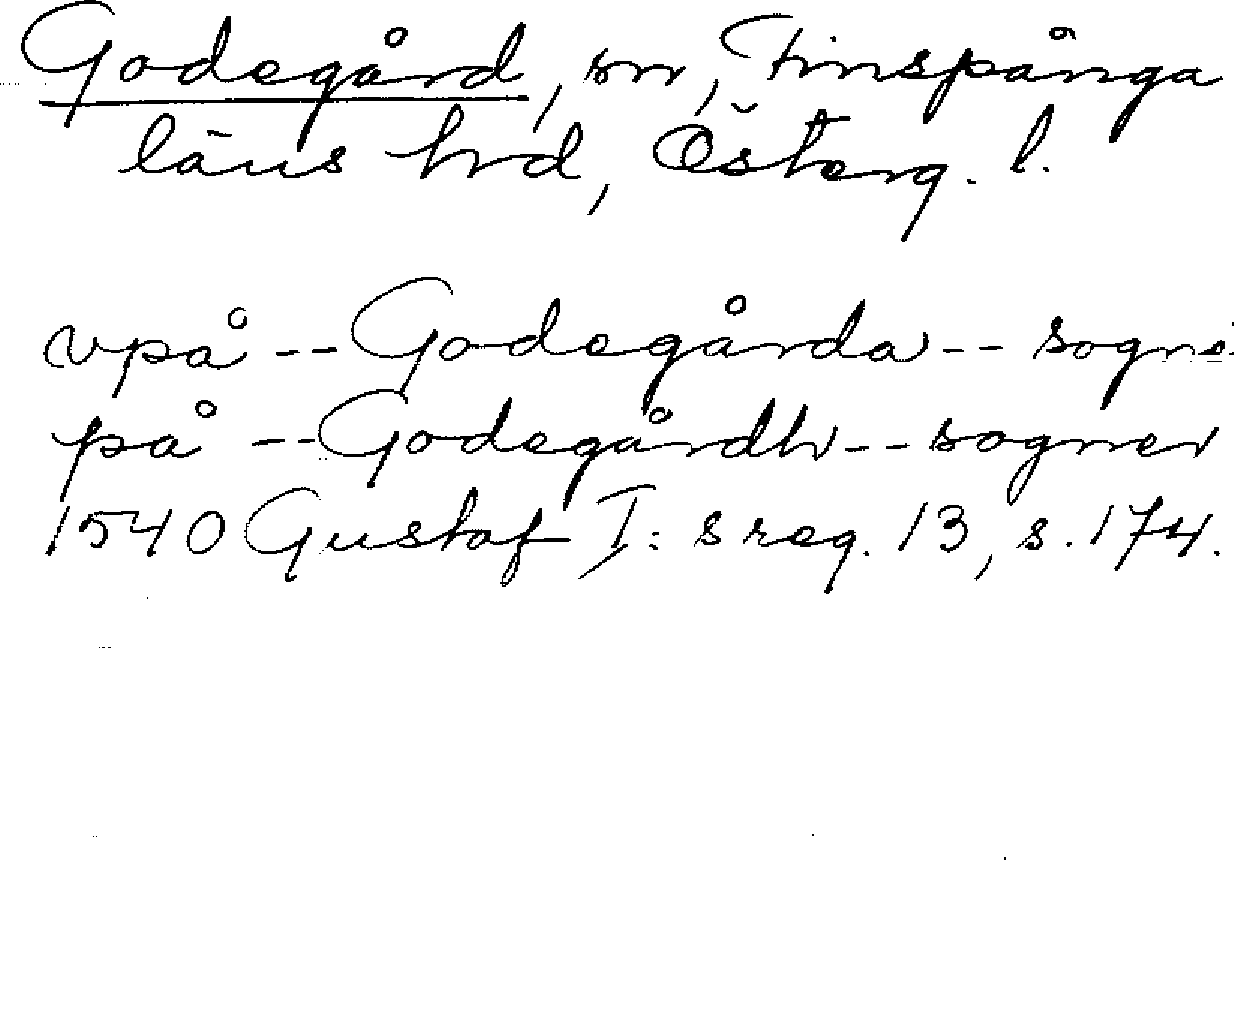 Godegård, sn, Finspånga
läns hrd, Österg. l.
vpå -- Godegårda -- sogne
på -- Godegårdh -- sogner
1540 Gustaf I:s reg. 13, s. 174.